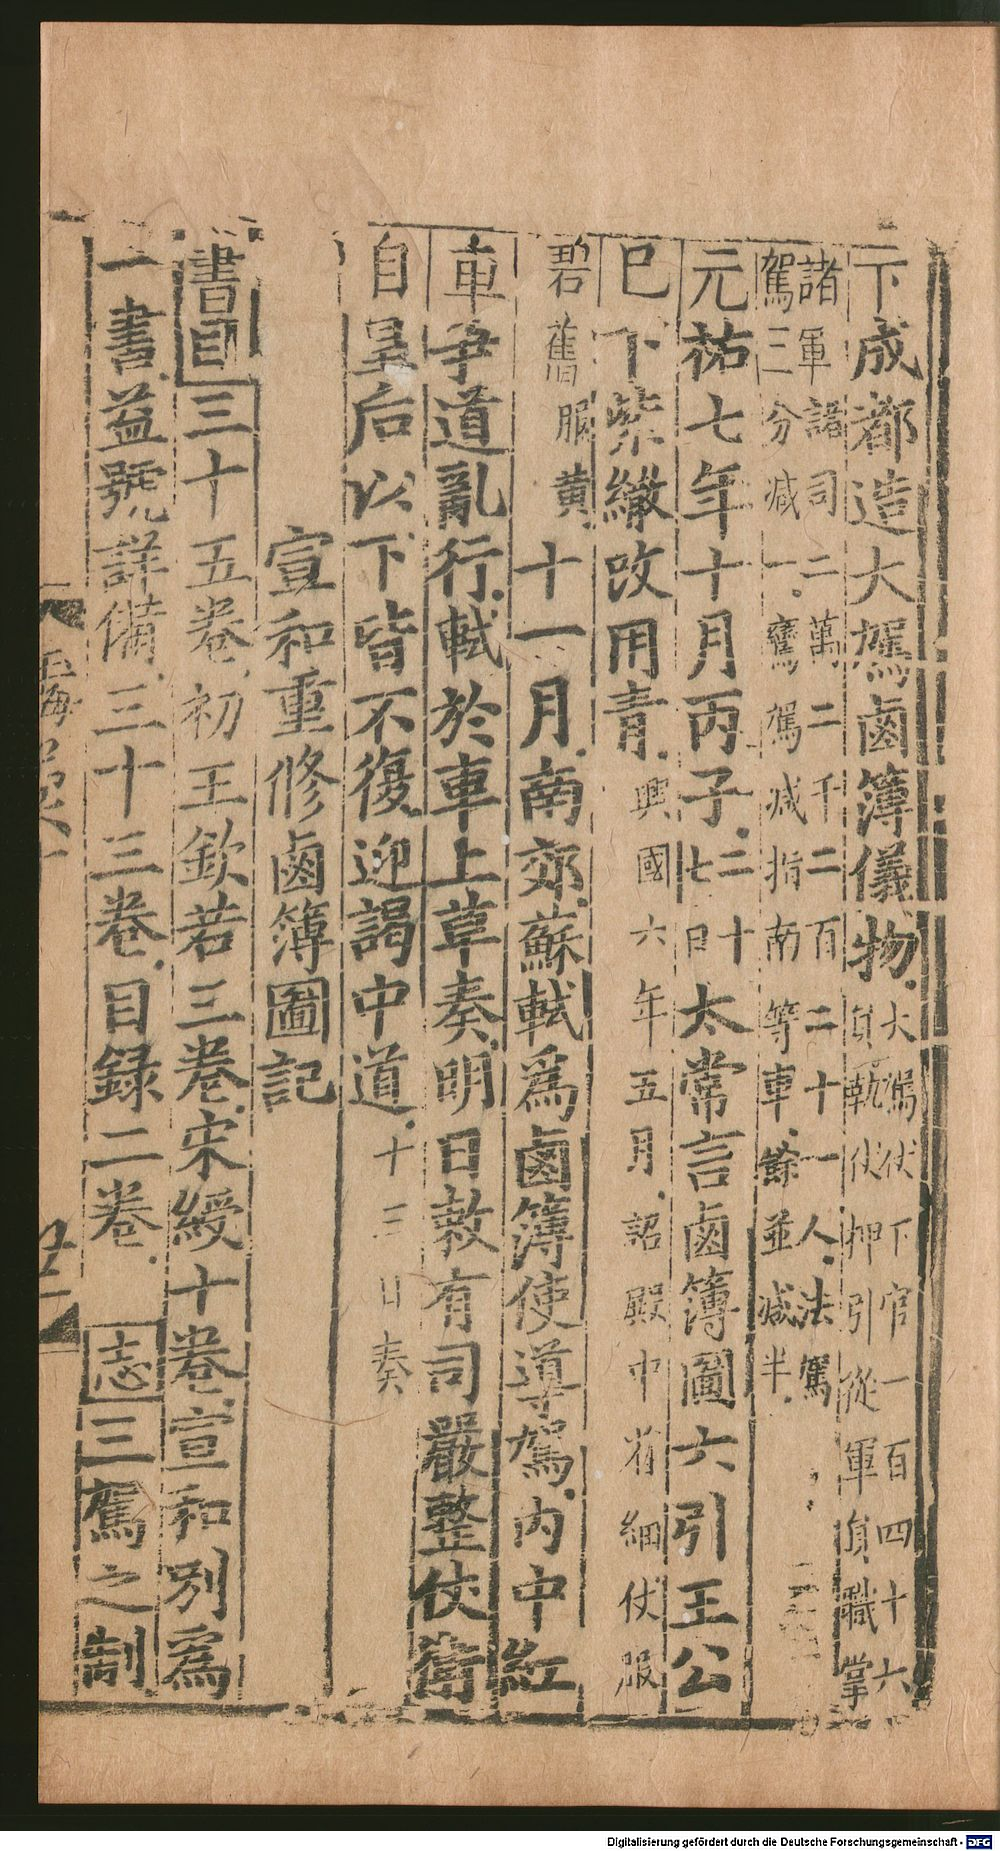 下成都造大駕鹵簿儀物大駕仗下官一百四十六
貟執仗押引從軍貟職掌
諸軍諸司二萬二千二百二十一人法駕
駕三分减一鸞駕减指南等車餘並减半
元祐七年十月丙子二十
七日太常言鹵簿圖六引王公
巳下紫繖改用青興國六年五月詔殿中省細仗服
碧舊服黄十一月南郊蘇軾爲鹵簿使導駕内中紅
車爭道亂行軾於車上草奏明日敕有司嚴整仗衛
自皇后以下皆不復迎謁中道十三日奏
宣和重修鹵簿圖記
書目三十五卷初王欽若三卷宋綬十卷宣和別爲
一書益號詳備三十三卷目録二卷志三駕之制
玉海
Digitalisierung gefördert durch die Deutsche Forschungsgemeinschaft - DFG